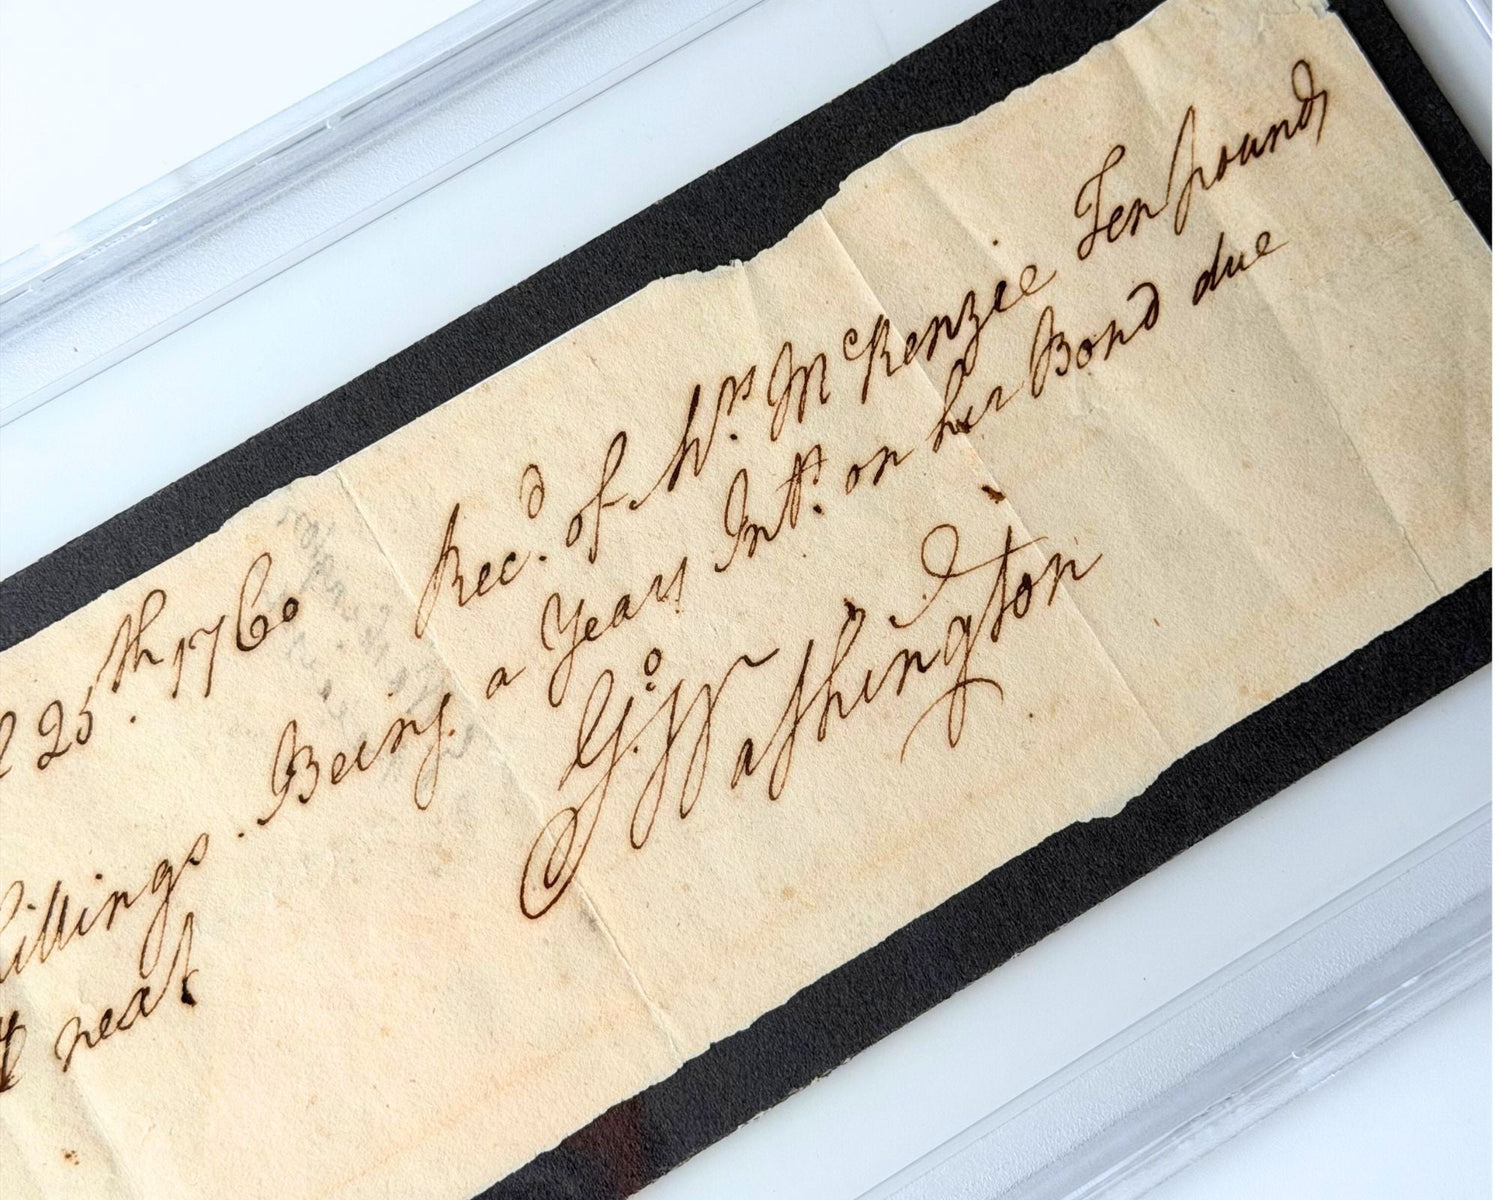 25th. 1760 Rec.d of Mrs. McKenzie Ten pounds
hillings. Being a Years Intt. on her Bond due
neat
Go: Washington